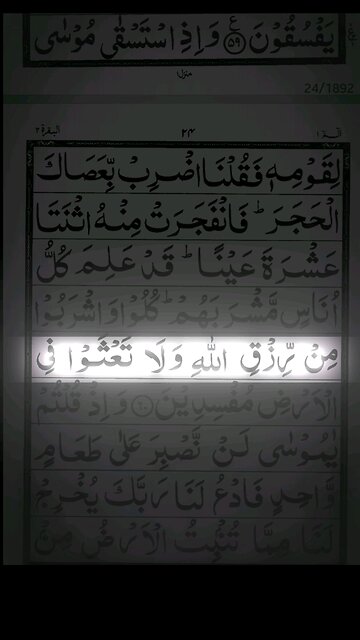 يَفْسُقُوْنَ ۝٥٩ ع وَ اِذِ اسْتَسْقٰى مُوْسٰى
منزل
24/1892
البقرة ٢ ٢٤ الٓمّٓ ١
لِقَوْمِهٖ فَقُلْنَا اضْرِبْ بِّعَصَاكَ
الْحَجَرَ ؕ فَانْفَجَرَتْ مِنْهُ اثْنَتَا
عَشْرَةَ عَيْنًا ؕ قَدْ عَلِمَ كُلُّ
اُنَاسٍ مَّشْرَبَهُمْ ؕ كُلُوْا وَ اشْرَبُوْا
مِنْ رِّزْقِ اللّٰهِ وَ لَا تَعْثَوْا فِى
الْاَرْضِ مُفْسِدِيْنَ ۝٦٠ وَ اِذْ قُلْتُمْ
يٰمُوْسٰى لَنْ نَّصْبِرَ عَلٰى طَعَامٍ
وَّاحِدٍ فَادْعُ لَنَا رَبَّكَ يُخْرِجْ
لَنَا مِمَّا تُنْۢبِتُ الْاَرْضُ مِنْۢ